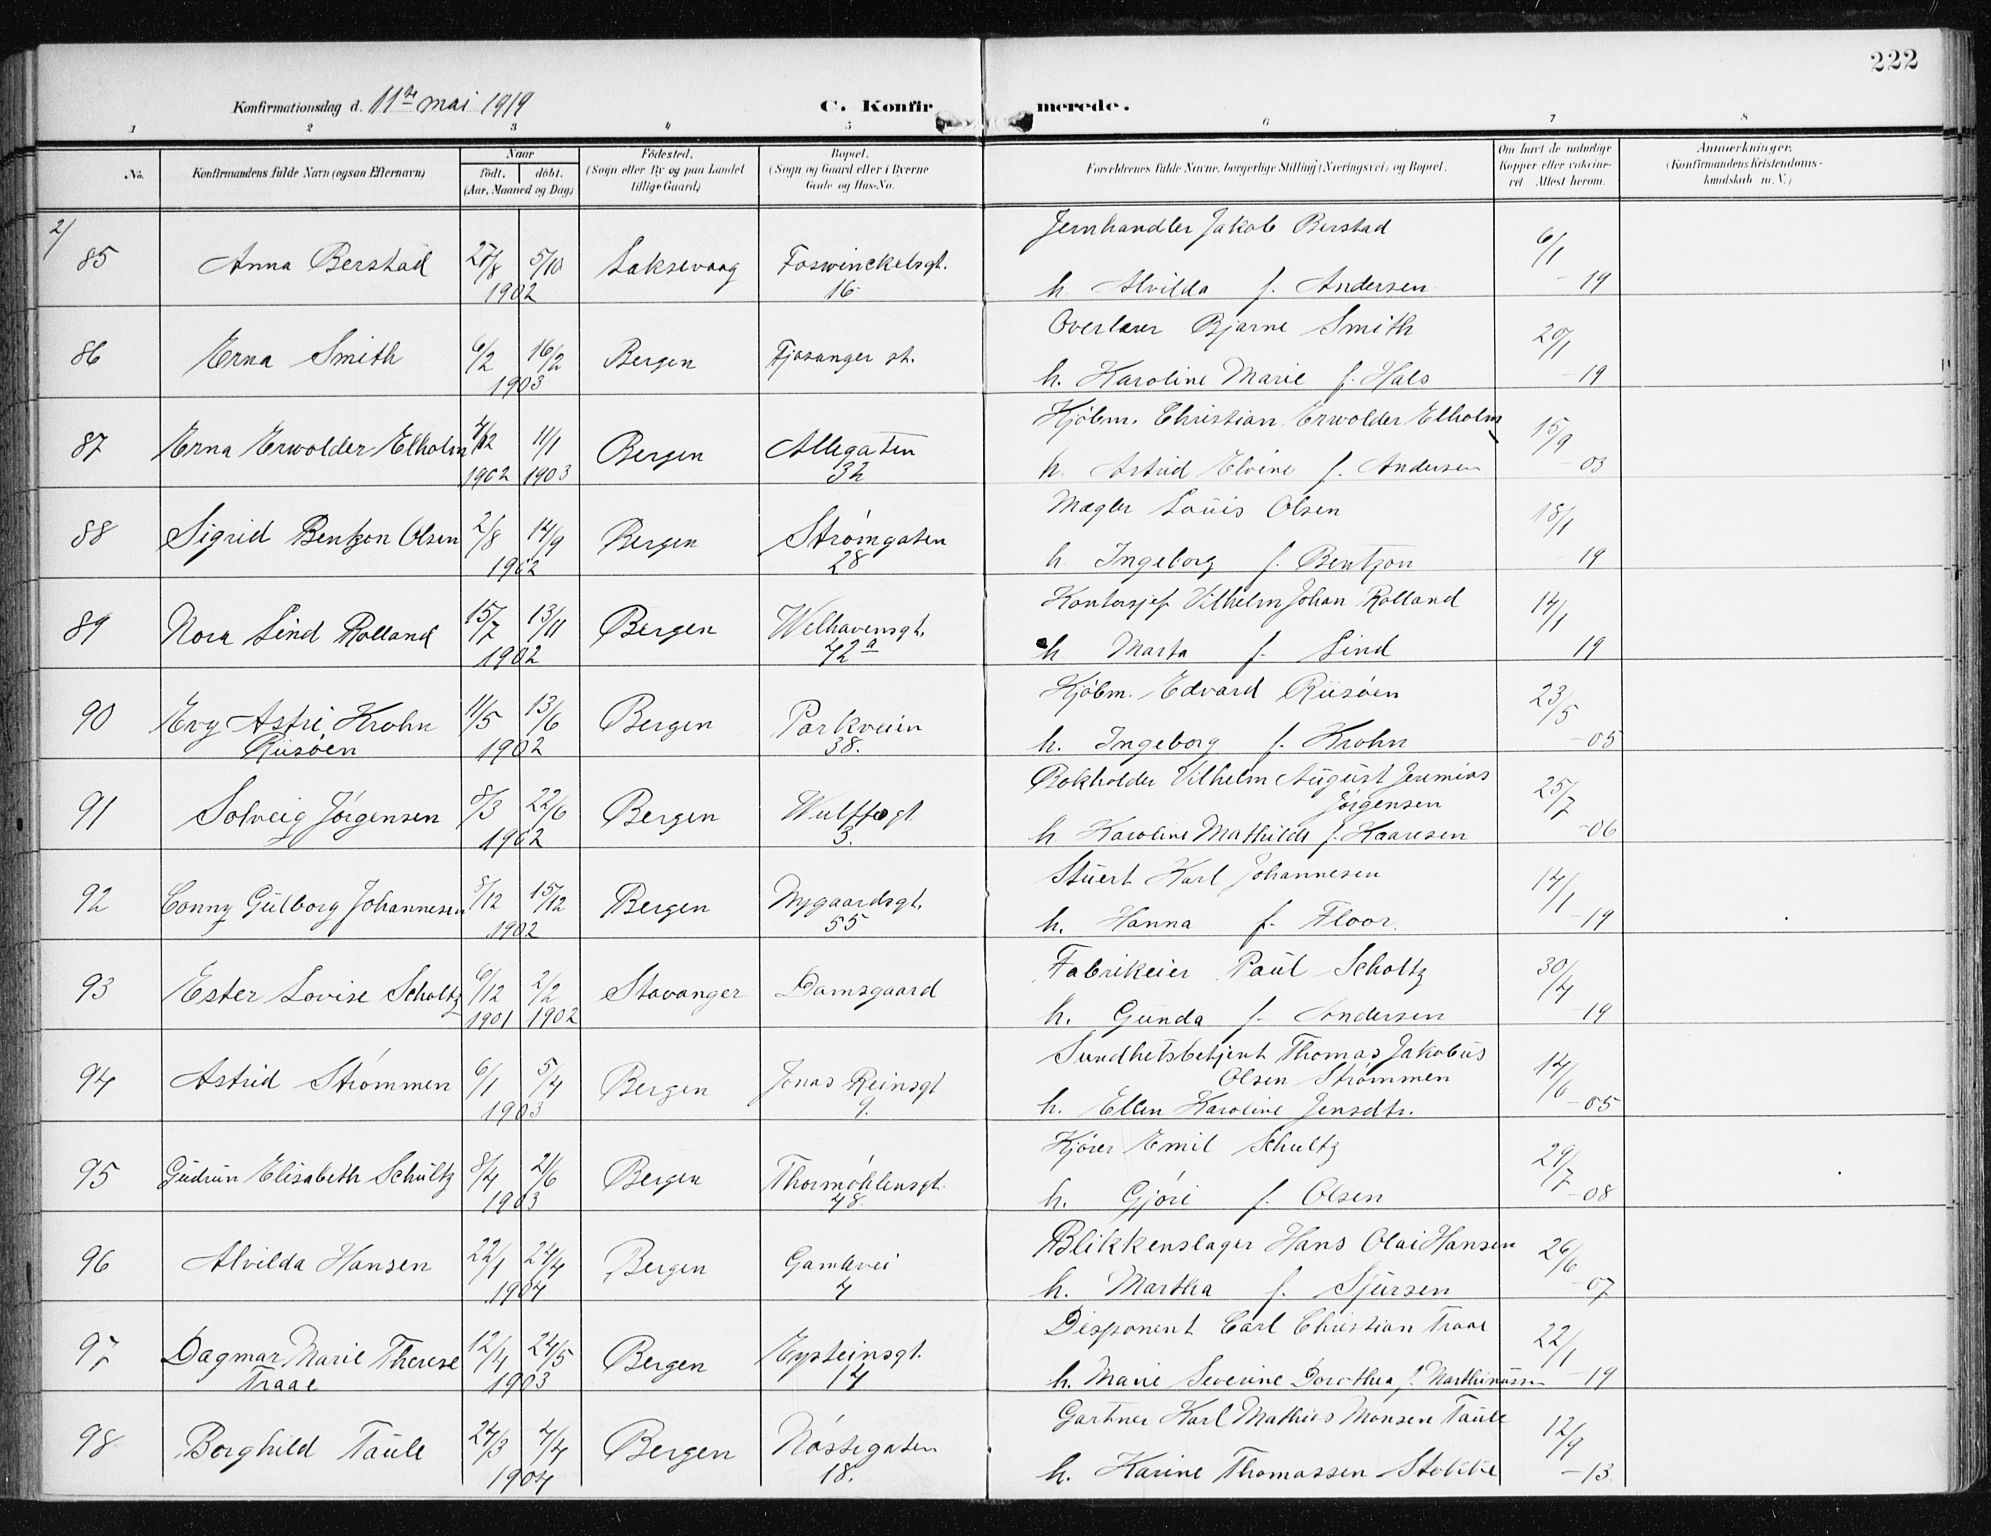 222
Konfirmationsdag d. 11te mai 1919 C. Konfirmerede.
1 2 3 4 5 6 7 8
No. Konfirmandens fulde Navn (ogsaa Efternavn) Naar født. døbt. (Aar, Maaned og Dag) Fødested. (Sogn eller By og paa Landet tillige Gaard) Bopæl. (Sogn og Gaard eller i Byerne Gade og Hus-No. Forældrenes fulde Navne, borgerlige Stilling (Næringsvei) og Bopæl. Om havt de naturlige Kopper eller vakcineret Attest herom. Anmærkninger. (Konfirmandens Kristendomskundskab m. V.)
2/
Jernhandler Jakob Berstad
85 Anna Berstad 27/8 5/10 Laksevaag Foswinckelsgt. 6/1
1902 16 h. Alvilda f. Andersen -19
Overlærer Bjarne Smith
86 Erna Smith 6/2 16/2 Bergen Fjøsanger st. 20/1
1903 h. Karoline Marie f. Hals -19
Kjøbm. Christian Erwolder Elholm
87 Erna Erwolder Elholm 4/12 11/1 Bergen Allegaten 15/9
1902 1903 32 h. Astrid Elvine f. Andersen -03
Mægler Louis Olsen
88 Sigrid Bentzon Olsen 2/8 14/9 Bergen Strømgaten 18/1
1902 28 h. Ingeborg f. Bentzon -19
Kontorsjef Vilhelm Johan Rolland
89 Nora Lind Rolland 15/7 13/11 Bergen Welhavensgt. 14/1
1902 72a h Marta f. Lind 19
Kjøbm. Edvard Riisøen
90 Evy Astri Krohn 11/5 13/6 Bergen Parkveien 23/5
Riisøen 1902 38. h. Ingeborg f. Krohn -05
Bokholder Vilhelm August Jeremias
91 Solveig Jørgensen 8/3 22/6 Bergen Wulffsgt Jørgensen 25/7
1902 3. h. Karoline Mathilde f. Kaaresen -06
Stuert Karl Johannesen
92 Conny Gulborg Johannesen 5/12 15/12 Bergen Nygaardsgt. 14/1
1902 55 h. Hanna f. Floor. -19
Fabrikeier Paul Scholtz
93 Ester Lovise Scholtz 6/12 2/2 Stavanger Damsgaard 30/4
1901 1902 h. Gunda f. Andersen -19
Sundhetsbetjent Thomas Jakobus
94 Astrid Strømmen 6/1 5/4 Bergen Jonas Reinsgt Olsen Strømmen 14/6
1903 h. Ellen Karoline Jensdtr. -05
Kjører Emil Schultz
95 Gudrun Elisabeth Schultz 8/4 21/6 Bergen Thormøhlensgt. 29/7
1903 48. h. Gjøri f. Olsen -08
Blikkenslager Hans Olai Hansen
96 Alvilda Hansen 22/1 24/4 Bergen Gamlevei 26/6
1904 4 h. Martha f. Sjursen -07
Disponent Carl Christian Traae
97 Dagmar Marie Therese 12/4 24/5 Bergen Eysteinsgt. 22/1
Traae 1903 14 h. Marie Severine Dorothea f. Marthinussen -19
Gartner Karl Mathias Monsen Taule
98 Borghild Taule 24/3 4/4 Bergen Nøstegaten 12/9
1904 18. h. Karine Thomassen Stokke -13